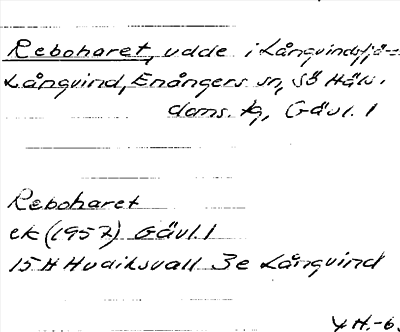 Reboharet, udde i Långvindsfjä-
Långvind, Enångers sn, Sö Häls.
doms. tg, Gävl. l
Reboharet
ek (1957) Gävl. l
15 H Hudiksvall 3e Långvind
YH.-6